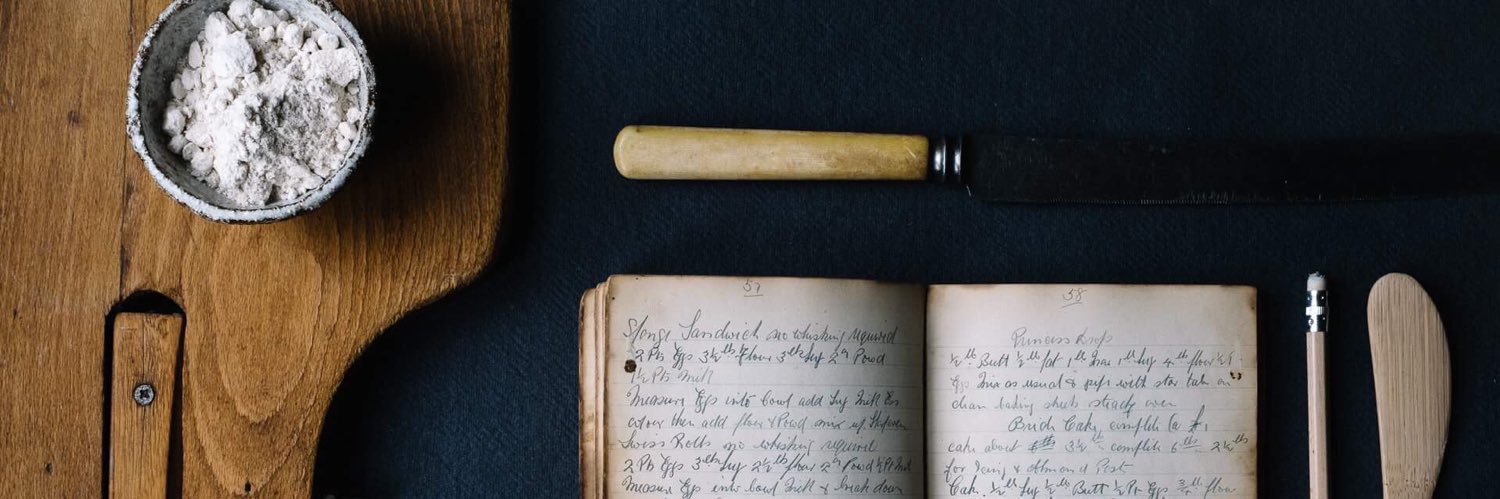 57
Sponge Sandwich no whisking required
2 Pts Eggs 3½ lbs flour 3 lbs Sug 2 oz Powd
1½ Pts Milk
Measure Eggs into bowl add Sug Milk
then add flour & Powd mix up
Swiss Rolls no whisking required
2 Pts Eggs 3 lbs Sug 2½ lbs flour 2 oz Powd ½ Pt Milk
Measure Eggs into bowl Milk & break down
58
Princess
½ lb Butt ½ lb fat 1 lb 1 lb Sug 4 lb flour
Eggs Mix as usual & pipe with star tube on
clean baking sheets steady oven
Cake complete
cake about 3½ lb complete 6 lbs 2½ lbs
for Icing & Almond Past
Cake ½ lb Sug ½ lb Butt ½ Pt Eggs ¾ lb flour